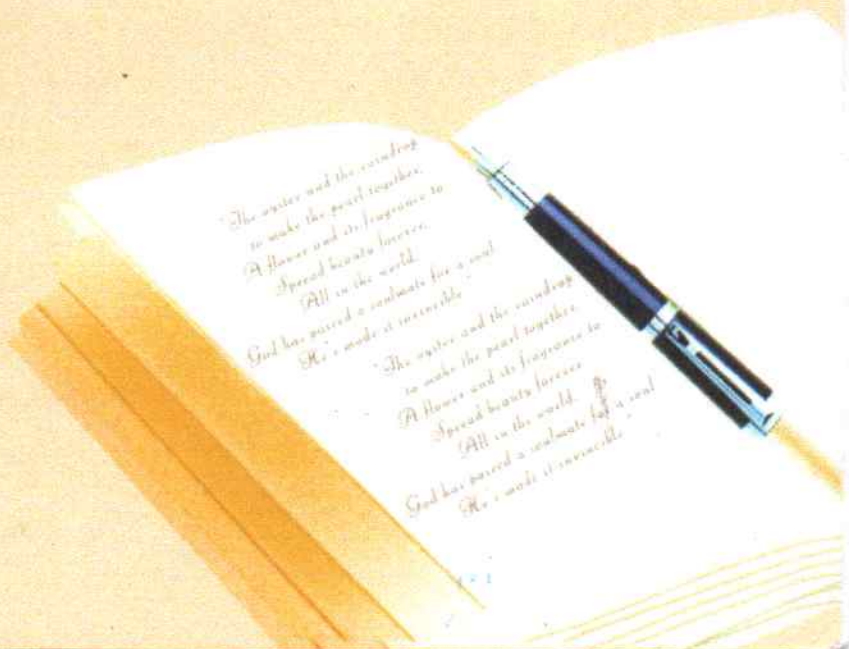 "The oyster and the raindrop
to make the pearl together.
A flower and its fragrance to
Spread beauty forever.
All in the world.
God has paired a soulmate for a soul
He's made it invincible"
"The oyster and the raindrop
to make the pearl together.
A flower and its fragrance to
Spread beauty forever
All in the world.
God has paired a soulmate for a soul
He's made it invincible"